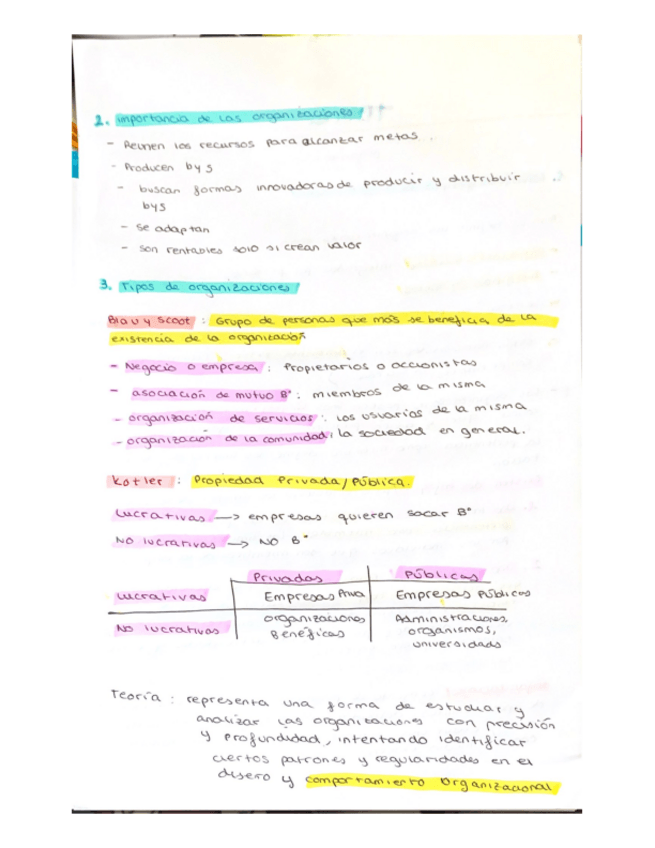 2. importancia de las organizaciones
- Reunen los recursos para alcanzar metas.
- Producen b y s
- buscan formas innovadoras de producir y distribuir
b y s
- se adaptan
- son rentables solo si crean valor
3. Tipos de organizaciones
Blau y Scoot : Grupo de personas que más se beneficia de la
existencia de la organización
- Negocio o empresa : Propietarios o accionistas
- asociación de mutuo Bº : miembros de la misma
- organización de servicios : los usuarios de la misma
- organización de la comunidad : la sociedad en general.
Kotler : Propiedad Privada/Pública.
Lucrativas -> empresas quieren sacar Bº
NO lucrativas -> NO Bº
Privadas Públicas
Lucrativas Empresas Priva Empresas Públicas
No lucrativas organizaciones Administraciones,
Benéficas organismos,
universidads
Teoría : representa una forma de estudiar y
analizar las organizaciones con precisión
y profundidad, intentando identificar
ciertos patrones y regularidades en el
diseño y comportamiento Organizacional